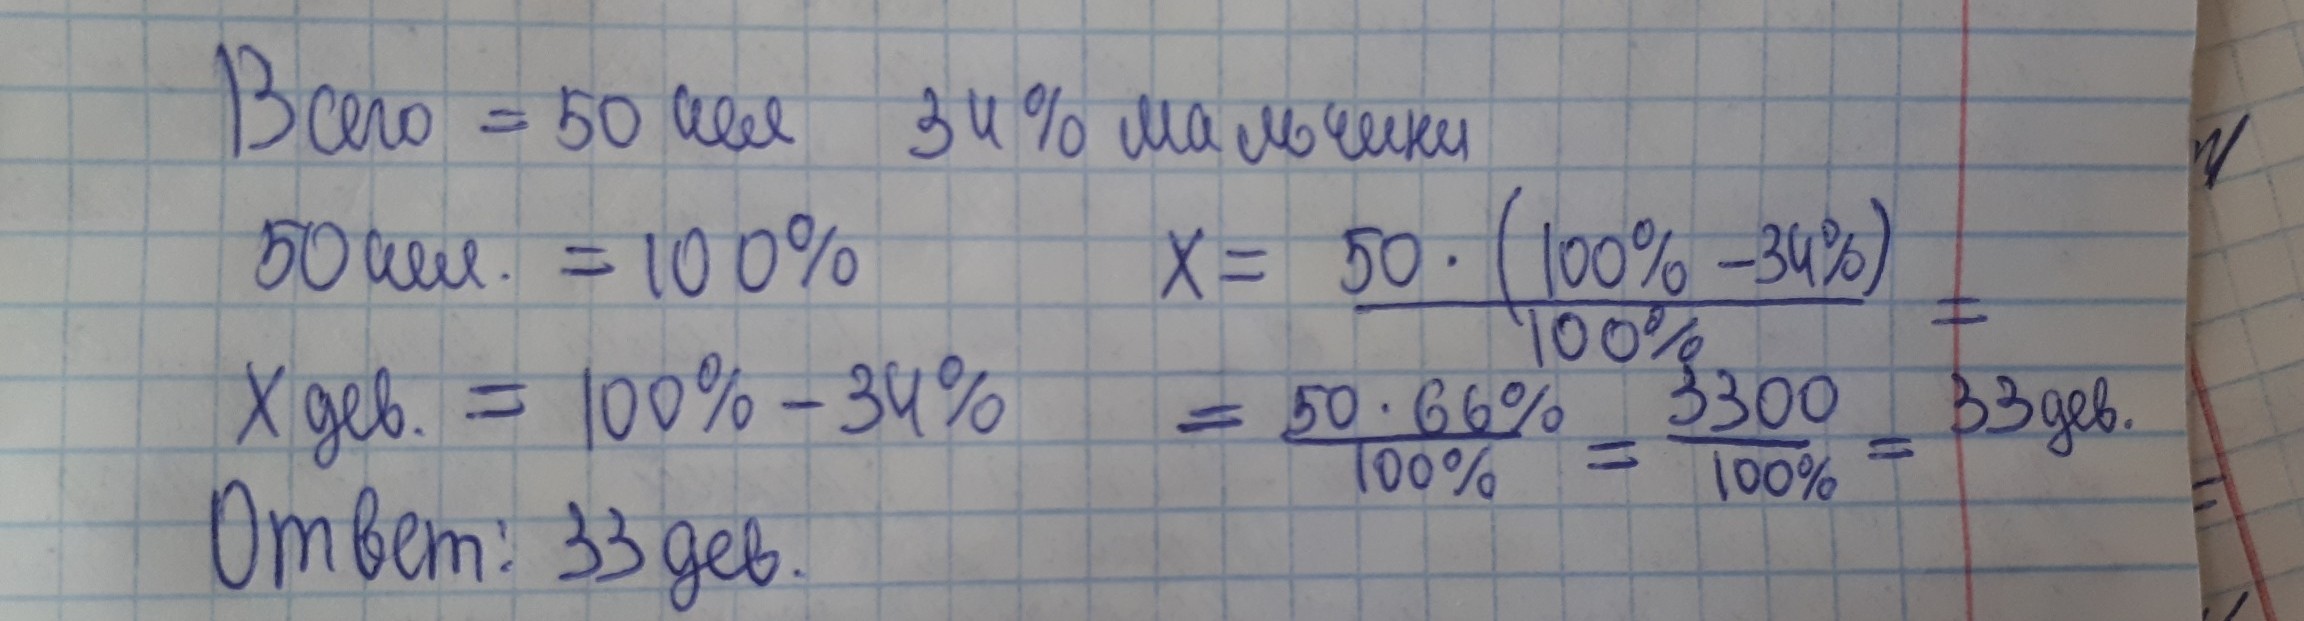 Всего = 50 чел 34% мальчики
50 чел. = 100%
X дев. = 100% - 34%
X = 50 · (100% - 34%) / 100% =
= 50 · 66% / 100% = 3300 / 100% = 33 дев.
Ответ: 33 дев.